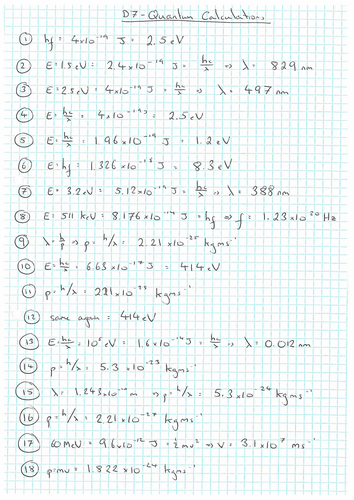 D7 - Quantum Calculations
① hf = 4x10⁻¹⁹ J = 2.5 eV
② E = 1.5 eV = 2.4x10⁻¹⁹ J = hc/λ ⇒ λ = 829 nm
③ E = 2.5 eV = 4x10⁻¹⁹ J = hc/λ ⇒ λ = 497 nm
④ E = hc/λ = 4x10⁻¹⁹ J = 2.5 eV
⑤ E = hc/λ = 1.96x10⁻¹⁹ J = 1.2 eV
⑥ E = hf = 1.326x10⁻¹⁸ J = 8.3 eV
⑦ E = 3.2 eV = 5.12x10⁻¹⁹ J = hc/λ ⇒ λ = 388 nm
⑧ E = 511 keV = 8.176x10⁻¹⁴ J = hf ⇒ f = 1.23x10²⁰ Hz
⑨ λ = h/p ⇒ p = h/λ = 2.21x10⁻²⁵ kgms⁻¹
⑩ E = hc/λ = 6.63x10⁻¹⁷ J = 414 eV
⑪ p = h/λ = 2.21x10⁻²⁵ kgms⁻¹
⑫ same again = 414 eV
⑬ E = hc/λ = 10⁵ eV = 1.6x10⁻¹⁴ J = hc/λ ⇒ λ = 0.012 nm
⑭ p = h/λ = 5.3x10⁻²³ kgms⁻¹
⑮ λ = 1.243x10⁻¹⁰ m ⇒ p = h/λ = 5.3x10⁻²⁴ kgms⁻¹
⑯ p = h/λ = 2.21x10⁻²⁷ kgms⁻¹
⑰ 60 MeV = 9.6x10⁻¹² J = ½mv² ⇒ v = 3.1x10⁷ ms⁻¹
⑱ p = mv = 1.822x10⁻²⁴ kgms⁻¹